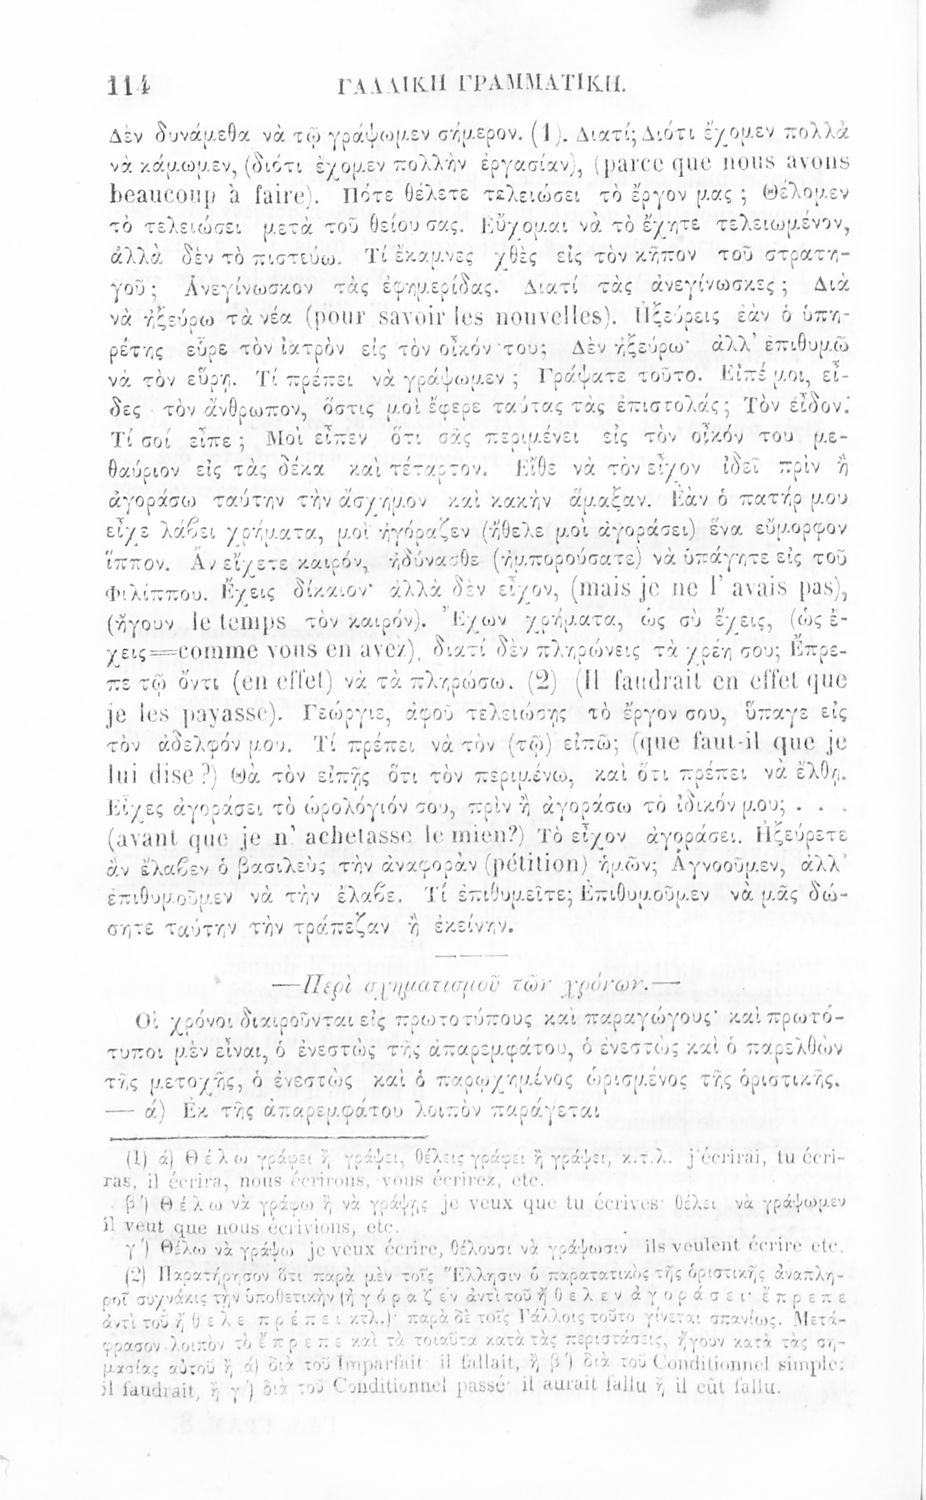 114 ΓΑΛΛΙΚΗ ΓΡΑΜΜΑΤΙΚΗ.
Δὲν δυνάμεθα νὰ τῷ γράψωμεν σήμερον. (1). Διατί; Διότι ἔχομεν πολλὰ
νὰ κάμωμεν, (διότι ἔχομεν πολλὴν ἐργασίαν), (parce que nous avons
beaucoup à faire). Πότε θέλετε τελειώσει τὸ ἔργον μας ; Θέλομεν
τὸ τελειώσει μετὰ τοῦ θείου σας. Εὔχομαι νὰ τὸ ἔχητε τελειωμένον,
ἀλλὰ δὲν τὸ πιστεύω. Τί ἔκαμνες χθὲς εἰς τὸν κῆπον τοῦ στρατη-
γοῦ ; Ἀνεγίνωσκον τὰς ἐφημερίδας. Διατί τὰς ἀνεγίνωσκες ; Διὰ
νὰ ἠξεύρω τὰ νέα (pour savoir les nouvelles). Ἠξεύρεις ἐὰν ὁ ὑπη-
ρέτης εὗρε τὸν ἰατρὸν εἰς τὸν οἶκόν του; Δὲν ἠξεύρω· ἀλλ' ἐπιθυμῶ
νὰ τὸν εὕρῃ. Τί πρέπει νὰ γράψωμεν ; Γράψατε τοῦτο. Εἰπέ μοι, εἶ-
δες τὸν ἄνθρωπον, ὅστις μοὶ ἔφερε ταύτας τὰς ἐπιστολάς; Τὸν εἶδον.
Τί σοί εἶπε ; Μοὶ εἶπεν ὅτι σᾶς περιμένει εἰς τὸν οἶκόν του με-
θαύριον εἰς τὰς δέκα καὶ τέταρτον. Εἴθε νὰ τὸν εἶχον ἰδεῖ πρὶν ἢ
ἀγοράσω ταύτην τὴν ἄσχημον καὶ κακὴν ἅμαξαν. Ἐὰν ὁ πατήρ μου
εἶχε λάβει χρήματα, μοὶ ἠγόραζεν (ἤθελε μοὶ ἀγοράσει) ἕνα εὔμορφον
ἵππον. Ἂν εἴχετε καιρόν, ἠδύνασθε (ἠμπορούσατε) νὰ ὑπάγητε εἰς τοῦ
Φιλίππου. Ἔχεις δίκαιον· ἀλλὰ δὲν εἶχον, (mais je ne l' avais pas),
(ἤγουν le temps τὸν καιρόν). Ἔχων χρήματα, ὡς σὺ ἔχεις, (ὡς ἔ-
χεις=comme vous en avez), διατί δὲν πληρώνεις τὰ χρέη σου; Ἔπρε-
πε τῷ ὄντι (en effet) νὰ τὰ πληρώσω. (2) (Il faudrait en effet que
je les payasse). Γεώργιε, ἀφοῦ τελειώσῃς τὸ ἔργον σου, ὕπαγε εἰς
τὸν ἀδελφόν μου. Τί πρέπει νὰ τὸν (τῷ) εἰπῶ; (que faut-il que je
lui dise?) Θὰ τὸν εἰπῇς ὅτι τὸν περιμένω, καὶ ὅτι πρέπει νὰ ἔλθῃ.
Εἶχες ἀγοράσει τὸ ὡρολόγιόν σου, πρὶν ἢ ἀγοράσω τὸ ἰδικόν μου; . . .
(avant que je n' achetasse le mien?) Τὸ εἶχον ἀγοράσει. Ἠξεύρετε
ἂν ἔλαβεν ὁ βασιλεὺς τὴν ἀναφορὰν (pétition) ἡμῶν; Ἀγνοοῦμεν, ἀλλ'
ἐπιθυμοῦμεν νὰ τὴν ἔλαβε. Τί ἐπιθυμεῖτε; Ἐπιθυμοῦμεν νὰ μᾶς δώ-
σητε ταύτην τὴν τράπεζαν ἢ ἐκείνην.
—Περὶ σχηματισμοῦ τῶν χρόνων.—
Οἱ χρόνοι διαιροῦνται εἰς πρωτοτύπους καὶ παραγώγους· καὶ πρωτό-
τυποι μὲν εἶναι, ὁ ἐνεστὼς τῆς ἀπαρεμφάτου, ὁ ἐνεστὼς καὶ ὁ παρελθὼν
τῆς μετοχῆς, ὁ ἐνεστὼς καὶ ὁ παρῳχημένος ὡρισμένος τῆς ὁριστικῆς.
— ά) Ἐκ τῆς ἀπαρεμφάτου λοιπὸν παράγεται
(1) ά) Θέλω γράφει ἢ γράψει, θέλεις γράφει ἢ γράψει, κ.τ.λ. j'écrirai, tu écri-
ras, il écrira, nous écrirons, vous écrirez, etc.
β') Θέλω νὰ γράφω ἢ νὰ γράψῃς je veux que tu écrives· θέλει νὰ γράψωμεν
il veut que nous écrivions, etc.
γ') Θέλω νὰ γράψω je veux écrire, θέλουσι νὰ γράψωσιν ils veulent écrire etc.
(2) Παρατήρησον ὅτι παρὰ μὲν τοῖς Ἕλλησιν ὁ παρατατικὸς τῆς ὁριστικῆς ἀναπλη-
ροῖ συχνάκις τὴν ὑποθετικὴν (ἠγόραζεν ἀντὶ τοῦ ἤθελεν ἀγοράσει· ἔπρεπε
ἀντὶ τοῦ ἤθελε πρέπει κτλ.)· παρὰ δὲ τοῖς Γάλλοις τοῦτο γίνεται σπανίως. Μετά-
φρασον λοιπὸν τὸ ἔπρεπε καὶ τὰ τοιαῦτα κατὰ τὰς περιστάσεις, ἤγουν κατὰ τὰς ση-
μασίας αὐτοῦ ἢ ά) διὰ τοῦ Imparfait il fallait, ἢ β') διὰ τοῦ Conditionnel simple:
il faudrait, ἢ γ') διὰ τοῦ Conditionnel passé· il aurait fallu ἢ il eût fallu.